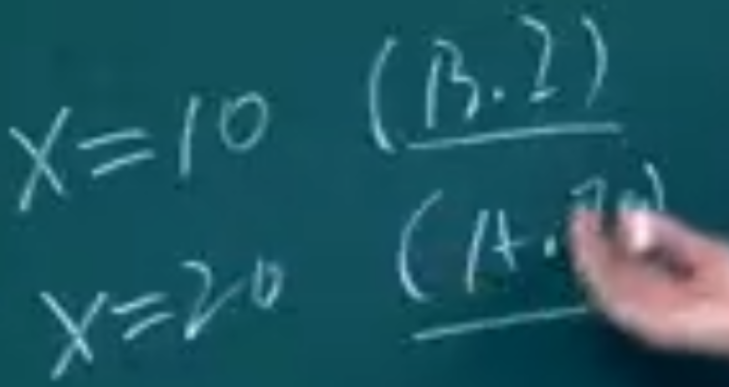 X=10 (B.2)
X=20 (A.